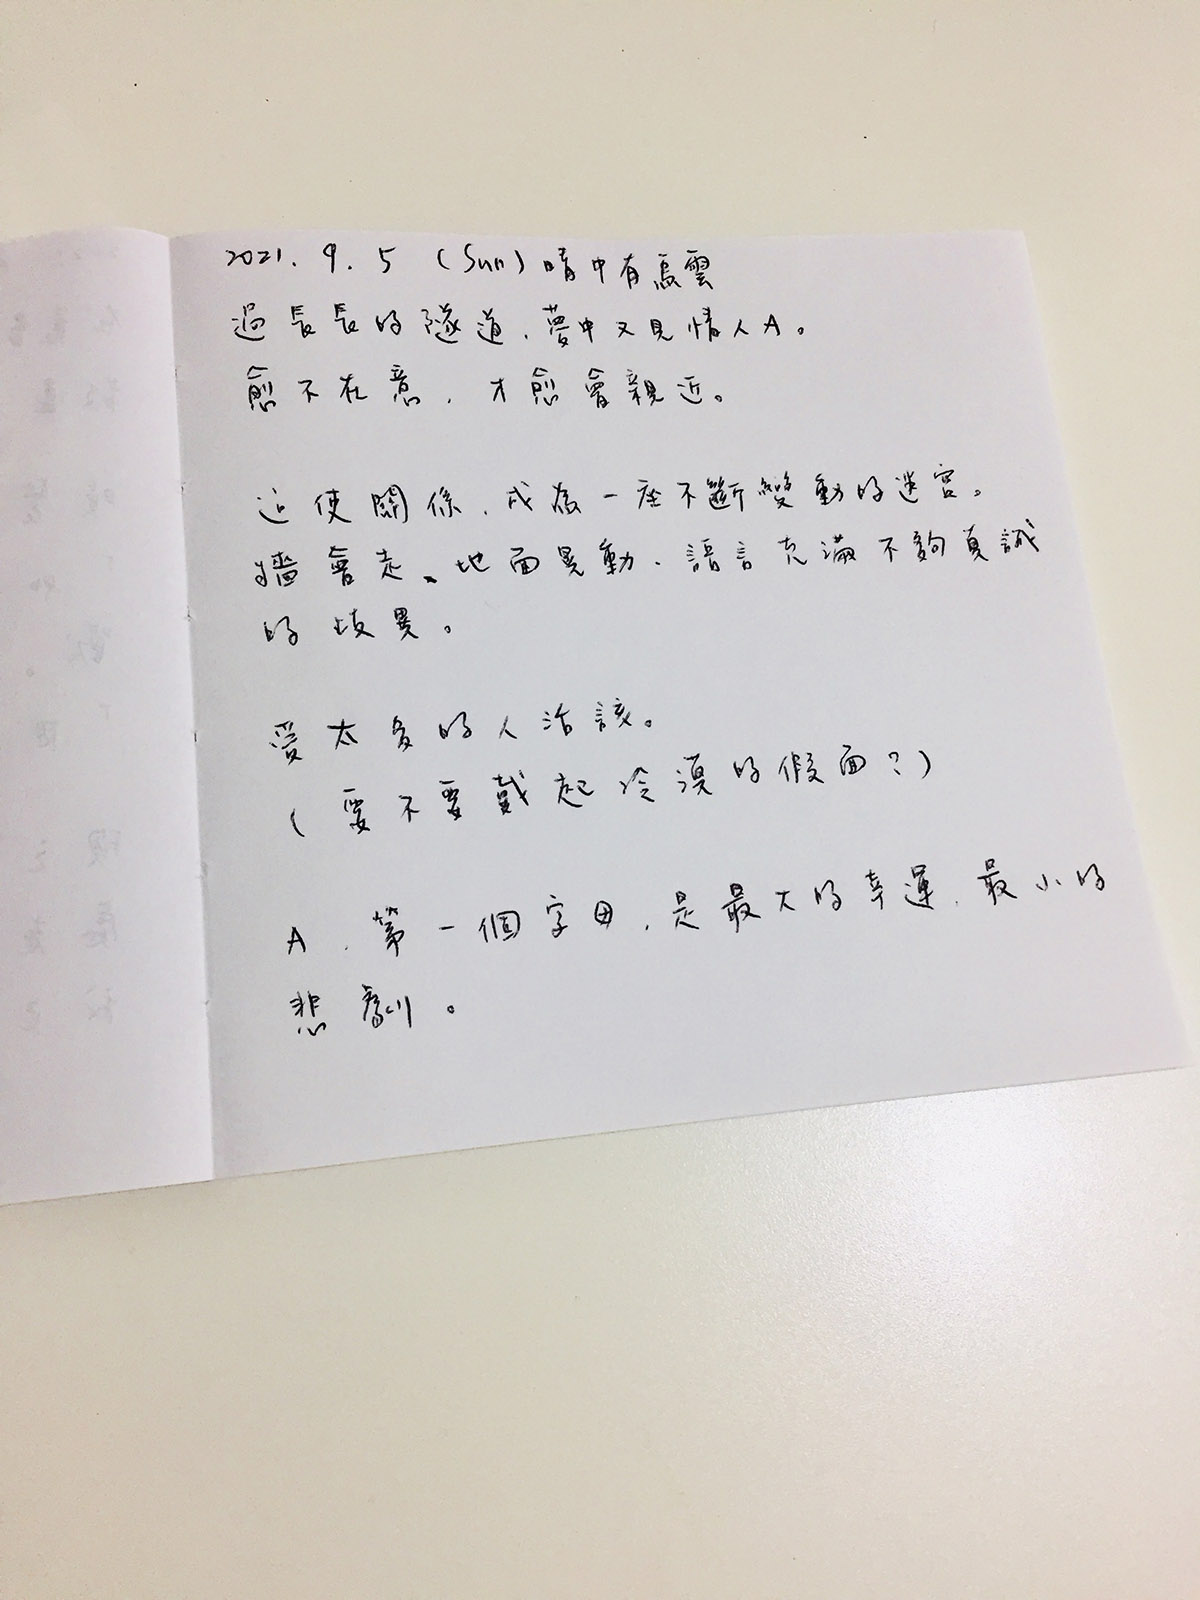 2021. 9. 5 (Sun) 晴中有烏雲
過長長的隧道，夢中又見情人A。
愈不在意，才愈會親近。
這使關係，成為一座不斷變動的迷宮。
牆會走、地面晃動，語言充滿不夠真誠
的歧異。
愛太多的人活該。
（要不要戴起冷漠的假面？）
A，第一個字母，是最大的幸運，最小的
悲劇。